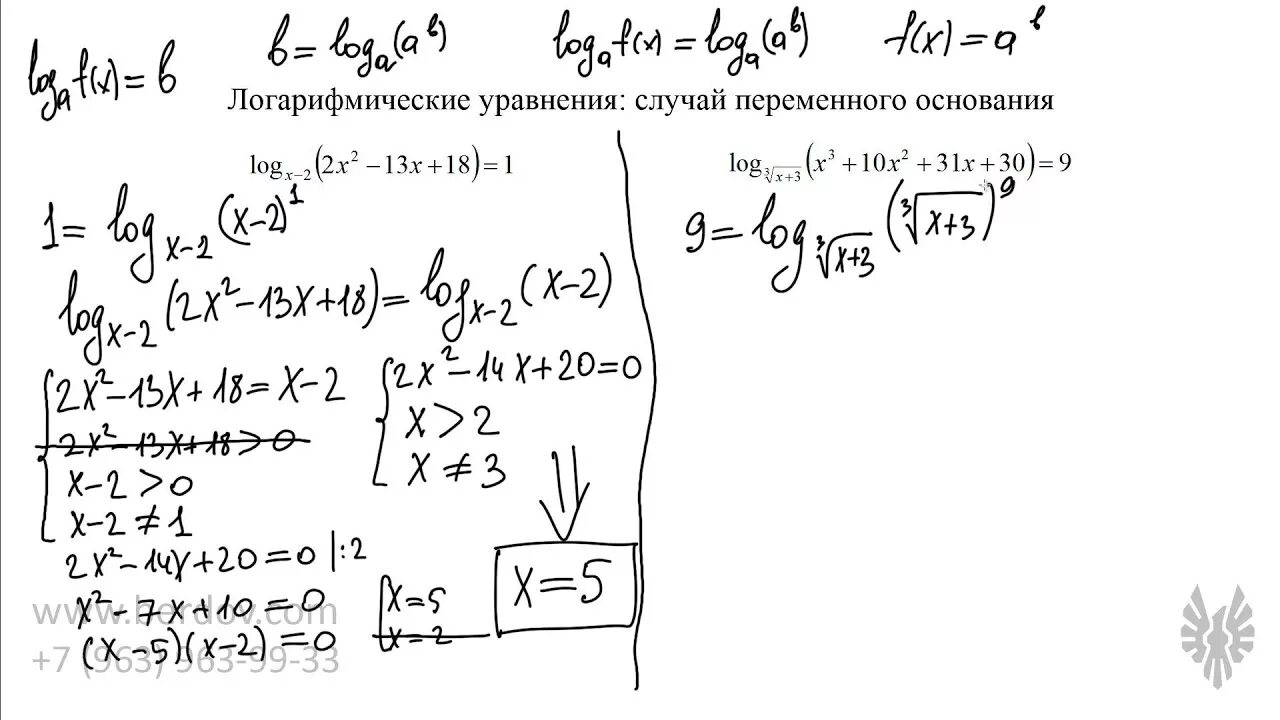 logₐf(x) = b
b = logₐ(aᵇ)
logₐf(x) = logₐ(aᵇ)
f(x) = aᵇ
Логарифмические уравнения: случай переменного основания
log_{x−2}(2x² − 13x + 18) = 1
1 = log_{x−2}(x−2)¹
log_{x−2}(2x² − 13x + 18) = log_{x−2}(x−2)
2x² − 13x + 18 = x − 2
2x² − 13x + 18 > 0
x − 2 > 0
x − 2 ≠ 1
2x² − 14x + 20 = 0
x > 2
x ≠ 3
2x² − 14x + 20 = 0 |:2
x² − 7x + 10 = 0
(x − 5)(x − 2) = 0
x = 5
x = 2
x = 5
log_{∛(x+3)}(x³ + 10x² + 31x + 30) = 9
9 = log_{∛(x+3)}(∛(x+3))⁹
www.berdov.com
+7 (963) 963-99-33